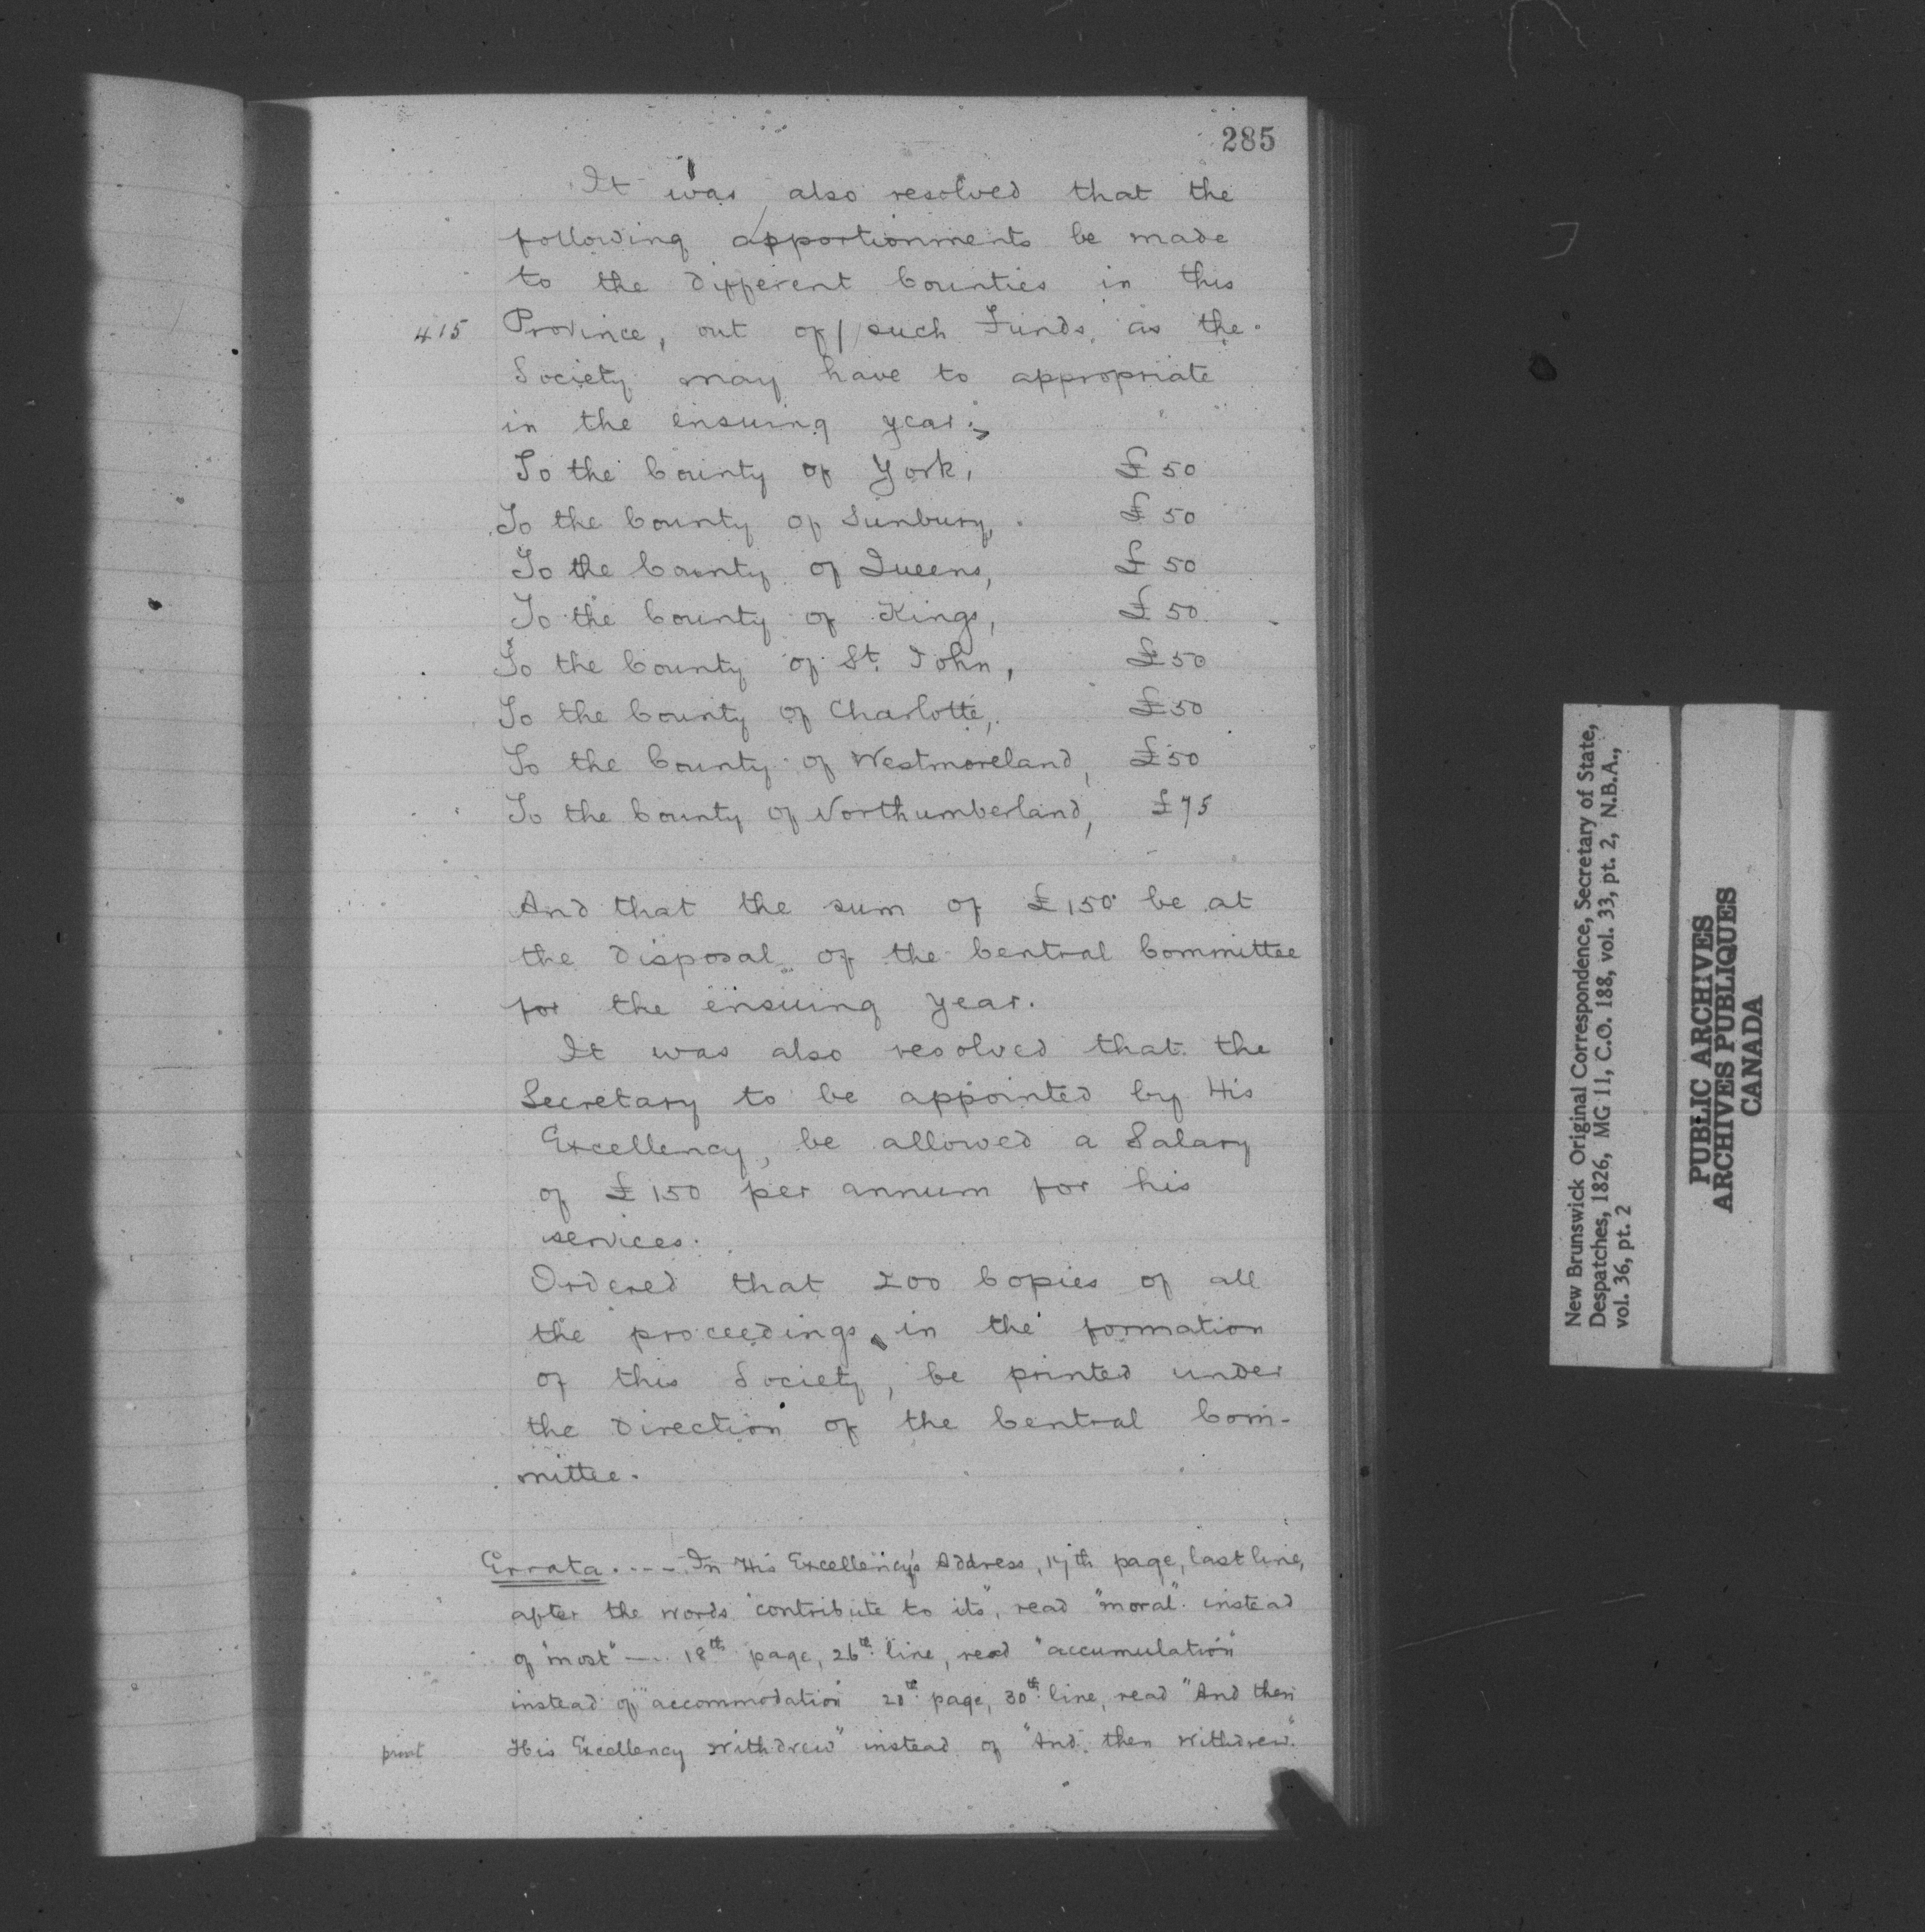 285
It was also resolved that the
following apportionments be made
to the different Counties in this
415 Province, out of / such Funds, as the
Society may have to appropriate
in the ensuing year:-
To the County of York, £50
To the County of Sunbury, £50
To the County of Queens, £50
To the County of Kings, £50
To the County of St. John, £50
To the County of Charlotte, £50
To the County of Westmoreland, £50
To the County of Northumberland, £75
And that the sum of £150 be at
the disposal of the Central Committee
for the ensuing year.
It was also resolved that the
Secretary to be appointed by His
Excellency, be allowed a Salary
of £150 per annum for his
services.
Ordered that 200 Copies of all
the proceedings in the formation
of this Society, be printed under
the Direction of the Central Com-
mittee.
Errata .--- In His Excellency's Address, 17th page, last line,
after the words "contribute to its", read "moral" instead
of "most" — 18th page, 26th line, read "accumulation"
instead of "accommodation" 20th page, 30th line, read "And then
print His Excellency withdrew" instead of "And then withdrew."
New Brunswick Original Correspondence, Secretary of State,
Despatches, 1826, MG 11, C.O. 188, vol. 33, pt. 2, N.B.A.,
vol. 36, pt. 2
PUBLIC ARCHIVES
ARCHIVES PUBLIQUES
CANADA